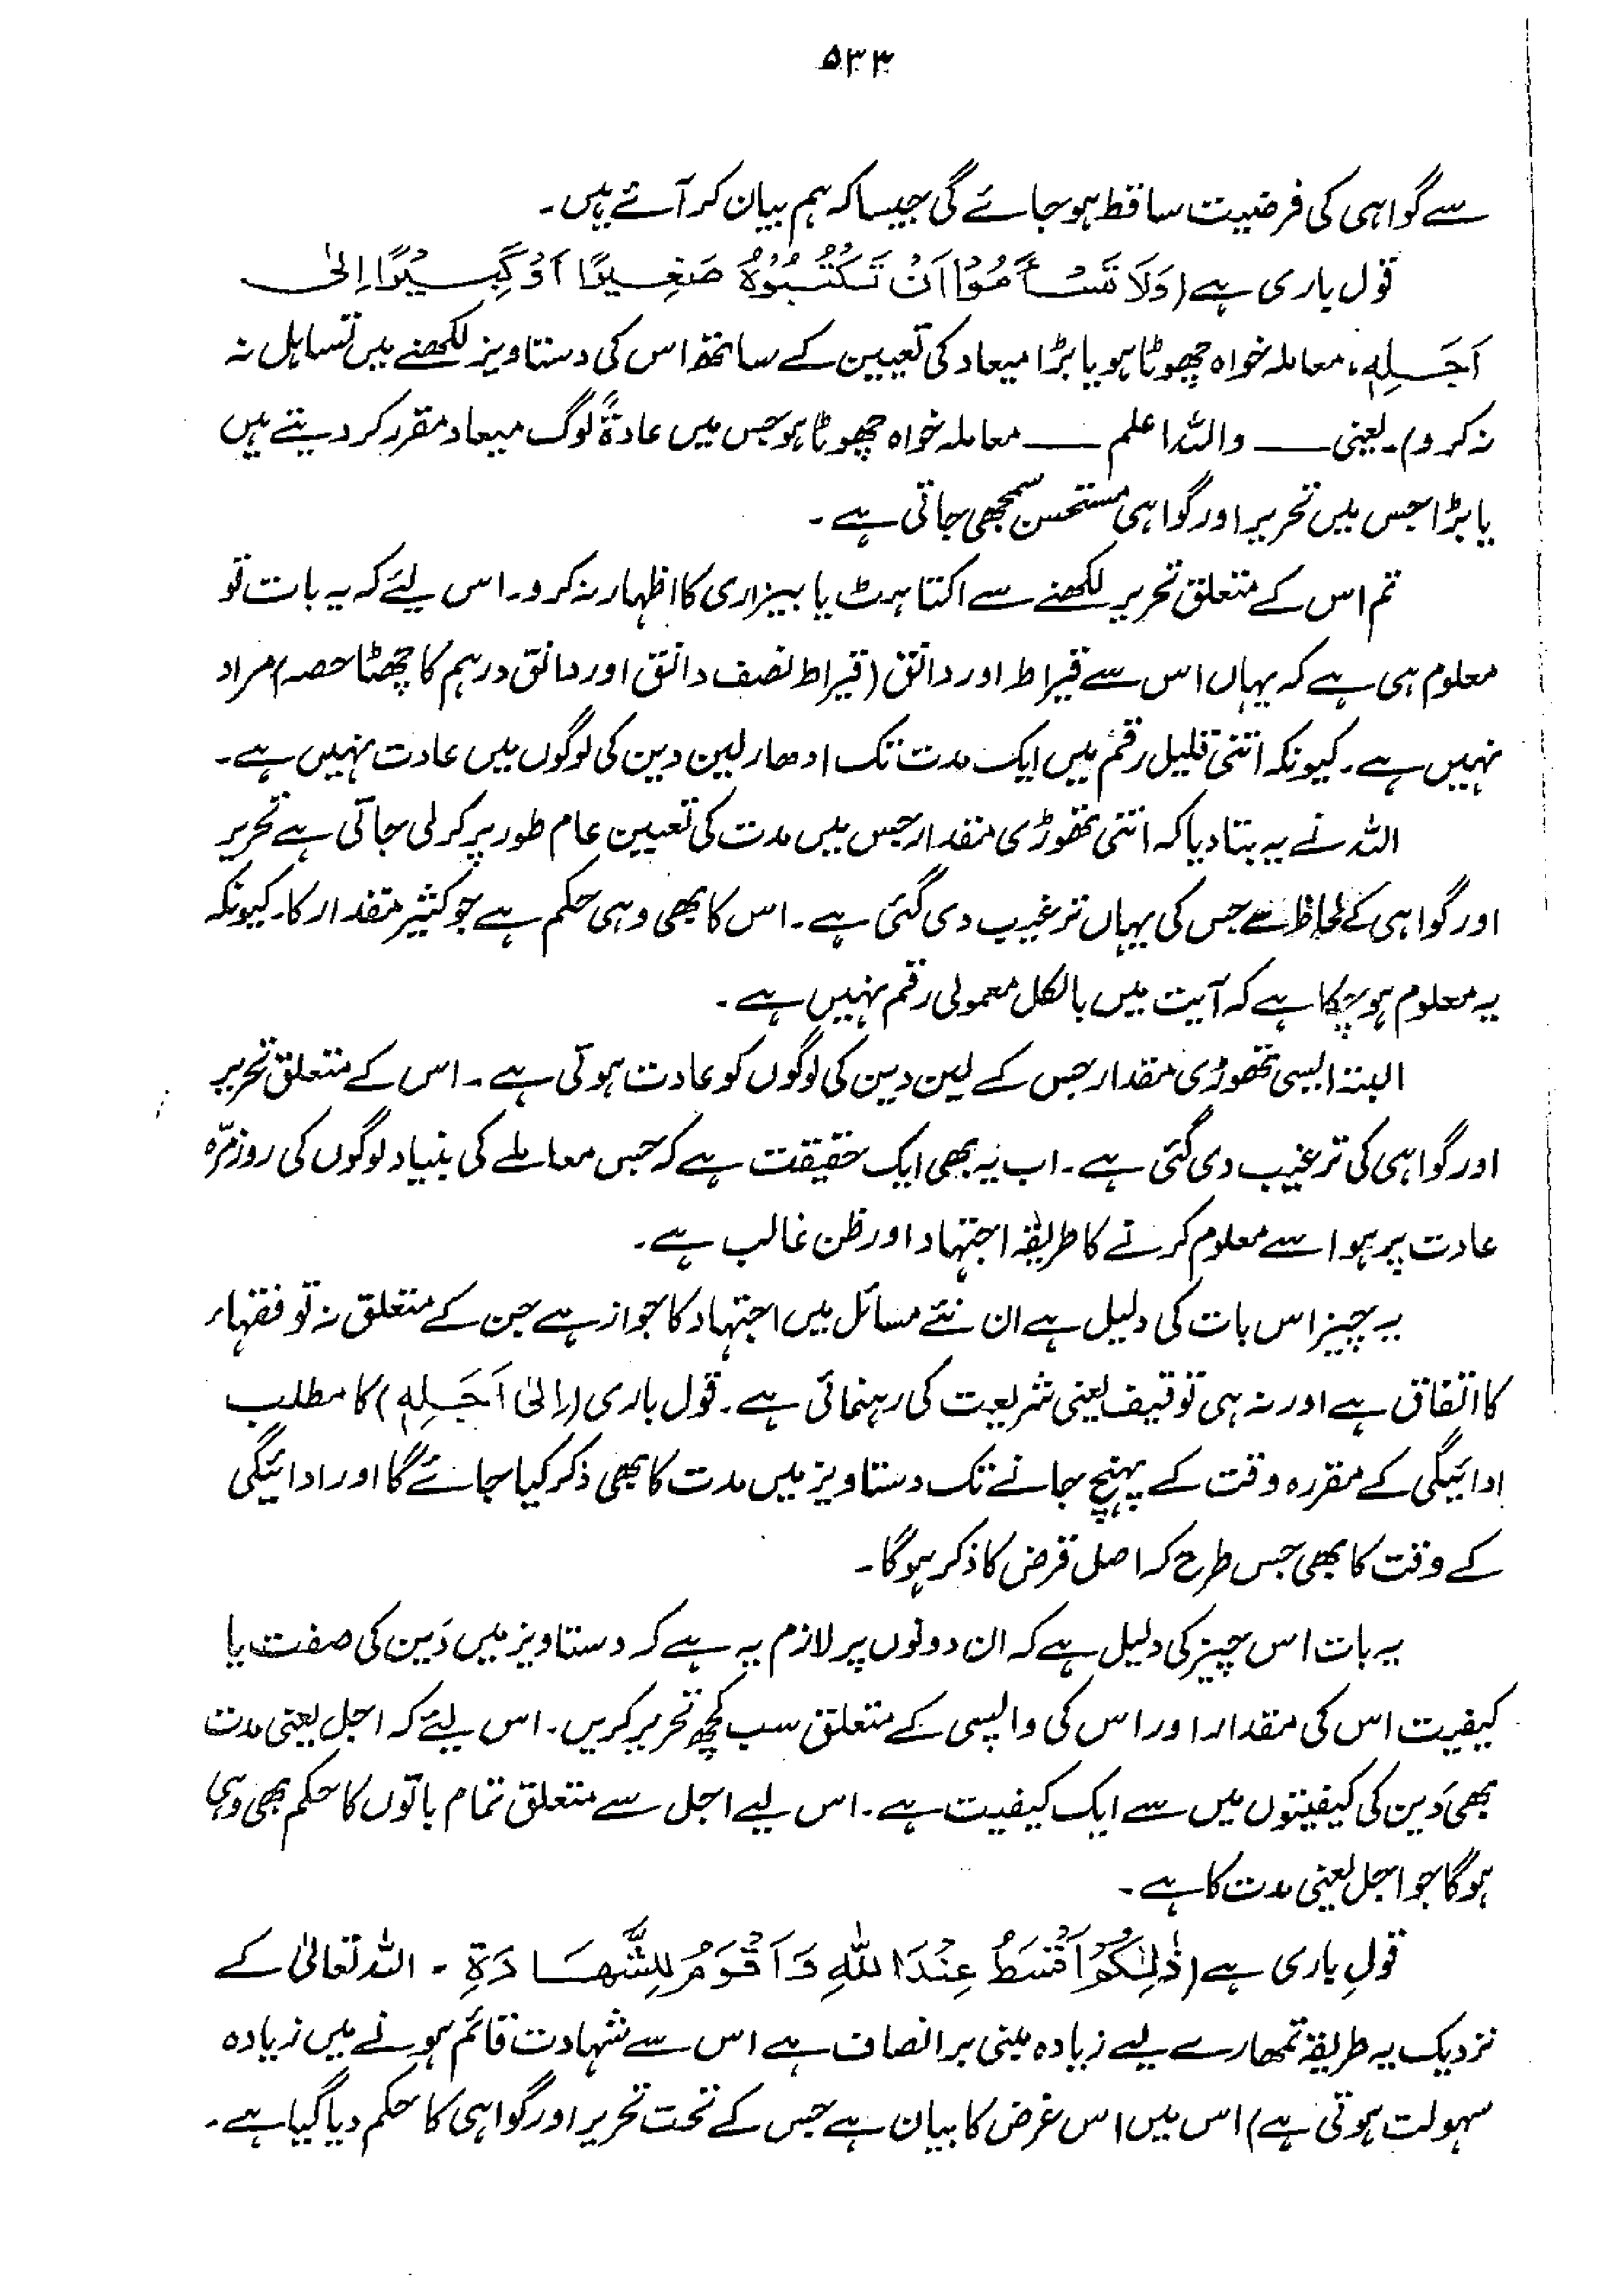 ۵۳۳
سے گواہی کی فرضیت ساقط ہو جائے گی جیسا کہ ہم بیان کر آئے ہیں۔
قول باری ہے (وَلَا تَسْأَمُوْا اَنْ تَكْتُبُوْهُ صَغِيرًا اَوْ كَبِيْرًا اِلىٰ
اَجَلِهٖ، معاملہ خواہ چھوٹا ہو یا بڑا میعاد کی تعیین کے ساتھ اس کی دستاویز لکھنے میں تساہل نہ
نہ کرو)۔ یعنی —— واللہ اعلم —— معاملہ خواہ چھوٹا ہو جس میں عادۃً لوگ میعاد مقرر کر دیتے ہیں
یا بڑا جس میں تحریر اور گواہی مستحسن سمجھی جاتی ہے۔
تم اس کے متعلق تحریر لکھنے سے اکتاہٹ یا بیزاری کا اظہار نہ کرو۔ اس لیئے کہ یہ بات تو
معلوم ہی ہے کہ یہاں اس سے قیراط اور دانق (قیراط نصف دانق اور دانق درہم کا چھٹا حصہ) مراد
نہیں ہے۔ کیونکہ اتنی قلیل رقم میں ایک مدت تک ادھار لین دین کی لوگوں میں عادت نہیں ہے۔
اللہ نے یہ بتا دیا کہ اتنی تھوڑی مقدار جس میں مدت کی تعیین عام طور پر کر لی جاتی ہے تحریر
اور گواہی کے لحاظ سے جس کی یہاں ترغیب دی گئی ہے۔ اس کا بھی وہی حکم ہے جو کثیر مقدار کا۔ کیونکہ
یہ معلوم ہو چکا ہے کہ آیت میں بالکل معمولی رقم نہیں ہے۔
البتہ ایسی تھوڑی مقدار جس کے لین دین کی لوگوں کو عادت ہوتی ہے۔ اس کے متعلق تحریر
اور گواہی کی ترغیب دی گئی ہے۔ اب یہ بھی ایک حقیقت ہے کہ جس معاملے کی بنیاد لوگوں کی روزمرّہ
عادت پر ہو اسے معلوم کرنے کا طریقہ اجتہاد اور ظن غالب ہے۔
یہ چیز اس بات کی دلیل ہے ان نئے مسائل میں اجتہاد کا جواز ہے جن کے متعلق نہ تو فقہاء
کا اتفاق ہے اور نہ ہی توقیف یعنی شریعت کی رہنمائی ہے۔ قول باری (اِلىٰ اَجَلِهٖ) کا مطلب
ادائیگی کے مقررہ وقت کے پہنچ جانے تک دستاویز میں مدت کا بھی ذکر کیا جائے گا اور ادائیگی
کے وقت کا بھی جس طرح کہ اصل قرض کا ذکر ہوگا۔
یہ بات اس چیز کی دلیل ہے کہ ان دونوں پر لازم یہ ہے کہ دستاویز میں دَین کی صفت یا
کیفیت اس کی مقدار اور اس کی واپسی کے متعلق سب کچھ تحریر کریں۔ اس لیئے کہ اجل یعنی مدت
بھی دَین کی کیفیتوں میں سے ایک کیفیت ہے۔ اس لیے اجل سے متعلق تمام باتوں کا حکم بھی وہی
ہوگا جو اجل یعنی مدت کا ہے۔
قولِ باری ہے (ذٰلِكُمْ اَقْسَطُ عِنْدَ اللهِ وَاَقْوَمُ لِلشَّهَادَةِ ۔ اللہ تعالیٰ کے
نزدیک یہ طریقہ تمھارے لیے زیادہ مبنی بر انصاف ہے اس سے شہادت قائم ہونے میں زیادہ
سہولت ہوتی ہے) اس میں اس غرض کا بیان ہے جس کے تحت تحریر اور گواہی کا حکم دیا گیا ہے۔